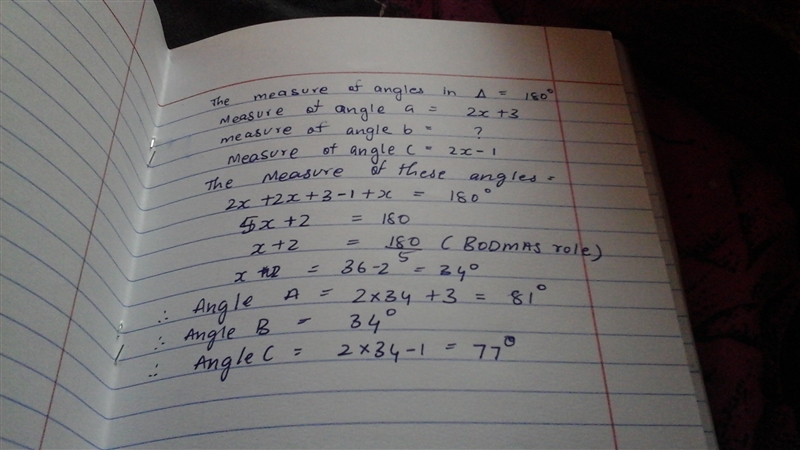 The measure of angles in Δ = 180°
Measure of angle a = 2x+3
measure of angle b = ?
Measure of angle C = 2x-1
The Measure of these angles =
2x +2x+3-1+x = 180°
5x+2 = 180
x+2 = 180/5 (BODMAS role)
x = 36-2 = 34°
∴ Angle A = 2x34 +3 = 81°
∴ Angle B = 34°
∴ Angle C = 2x34-1 = 77°